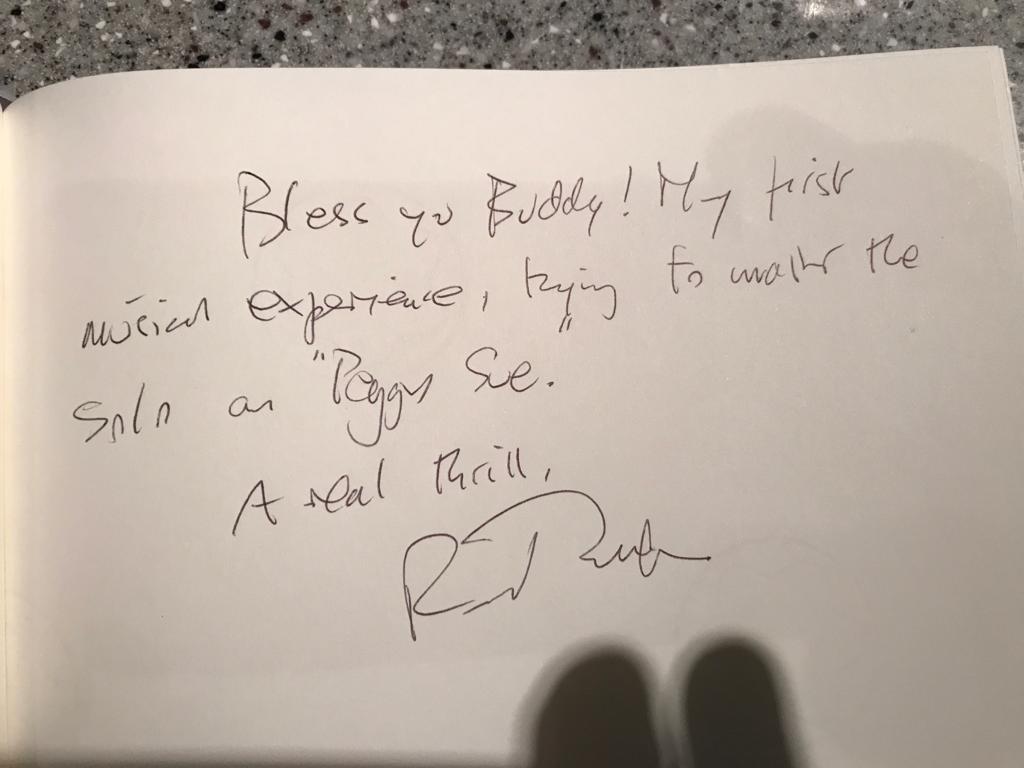 Bless you Buddy! My first
musical experience, trying to master the
solo on "Peggy Sue."
A real thrill,